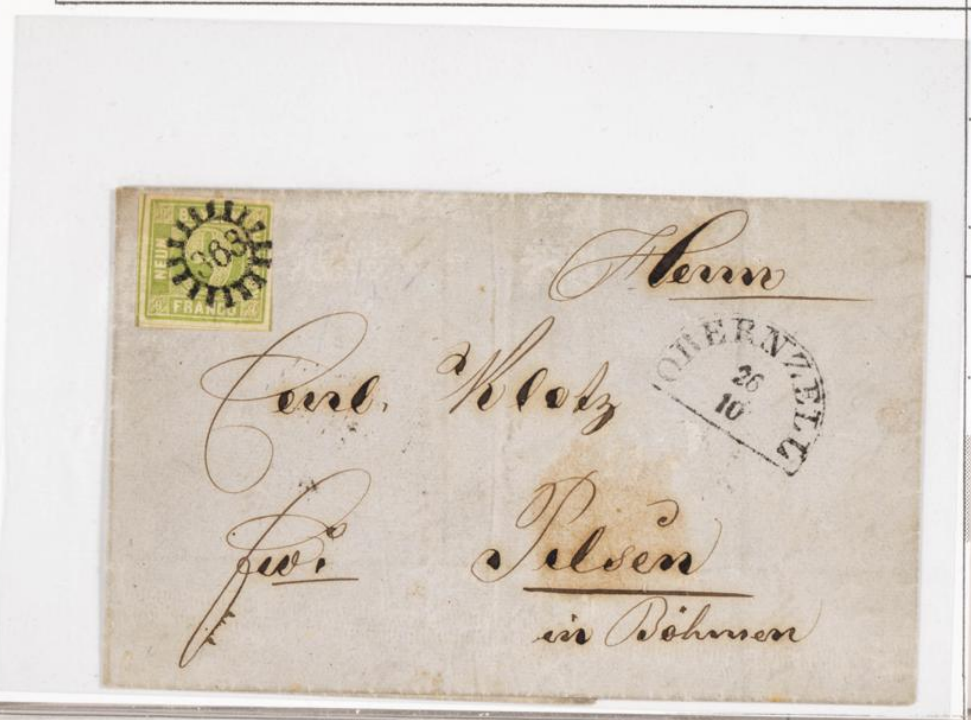 NEUN
363
FRANCO
Herrn
OBERNZELL
26
10
Carl Klotz
Pilsen
in Böhmen